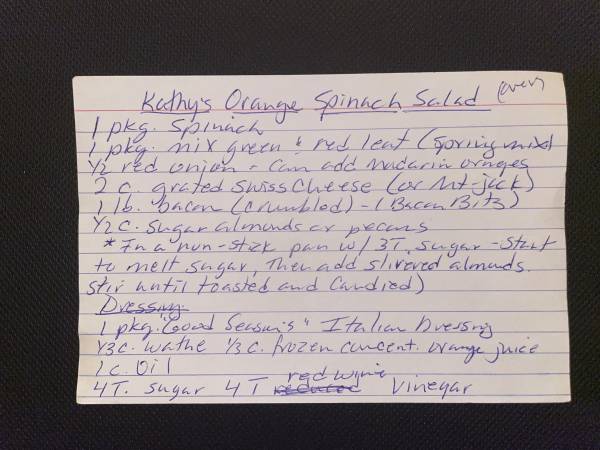 Kathy's Orange Spinach Salad (over)
1 pkg. Spinach
1 pkg. mix green & red leaf (Spring mix)
1/2 red onion - Can add Madarin oranges
2 c. grated Swiss Cheese (or Mt-jack)
1 lb. bacon (crumbled) - (Bacon Bits)
1/2 c. Sugar almonds or pecans
* In a non-stick pan w/ 3T. sugar - Start
to melt sugar, Then add slivered almonds.
Stir until toasted and Candied)
Dressing:
1 pkg. "Good Season's" Italian Dressing
1/3 c. wathe 1/3 c. frozen concent. orange juice
1 c. Oil
4 T. sugar 4 T red wine vinegar